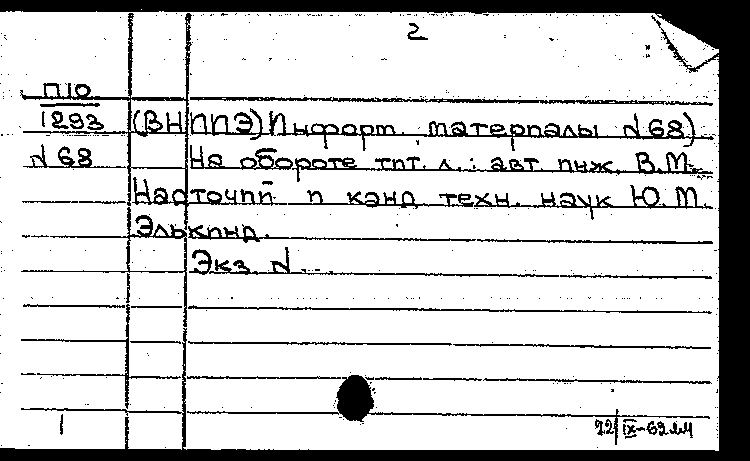 2
П10
1293 (ВНИИЭ) Информ. материалы N 68)
N 68 На обороте тит. л.: авт. инж. В.М.
Насточий и канд. техн. наук Ю.М.
Элькинд.
Экз. N
1
22/IX-69